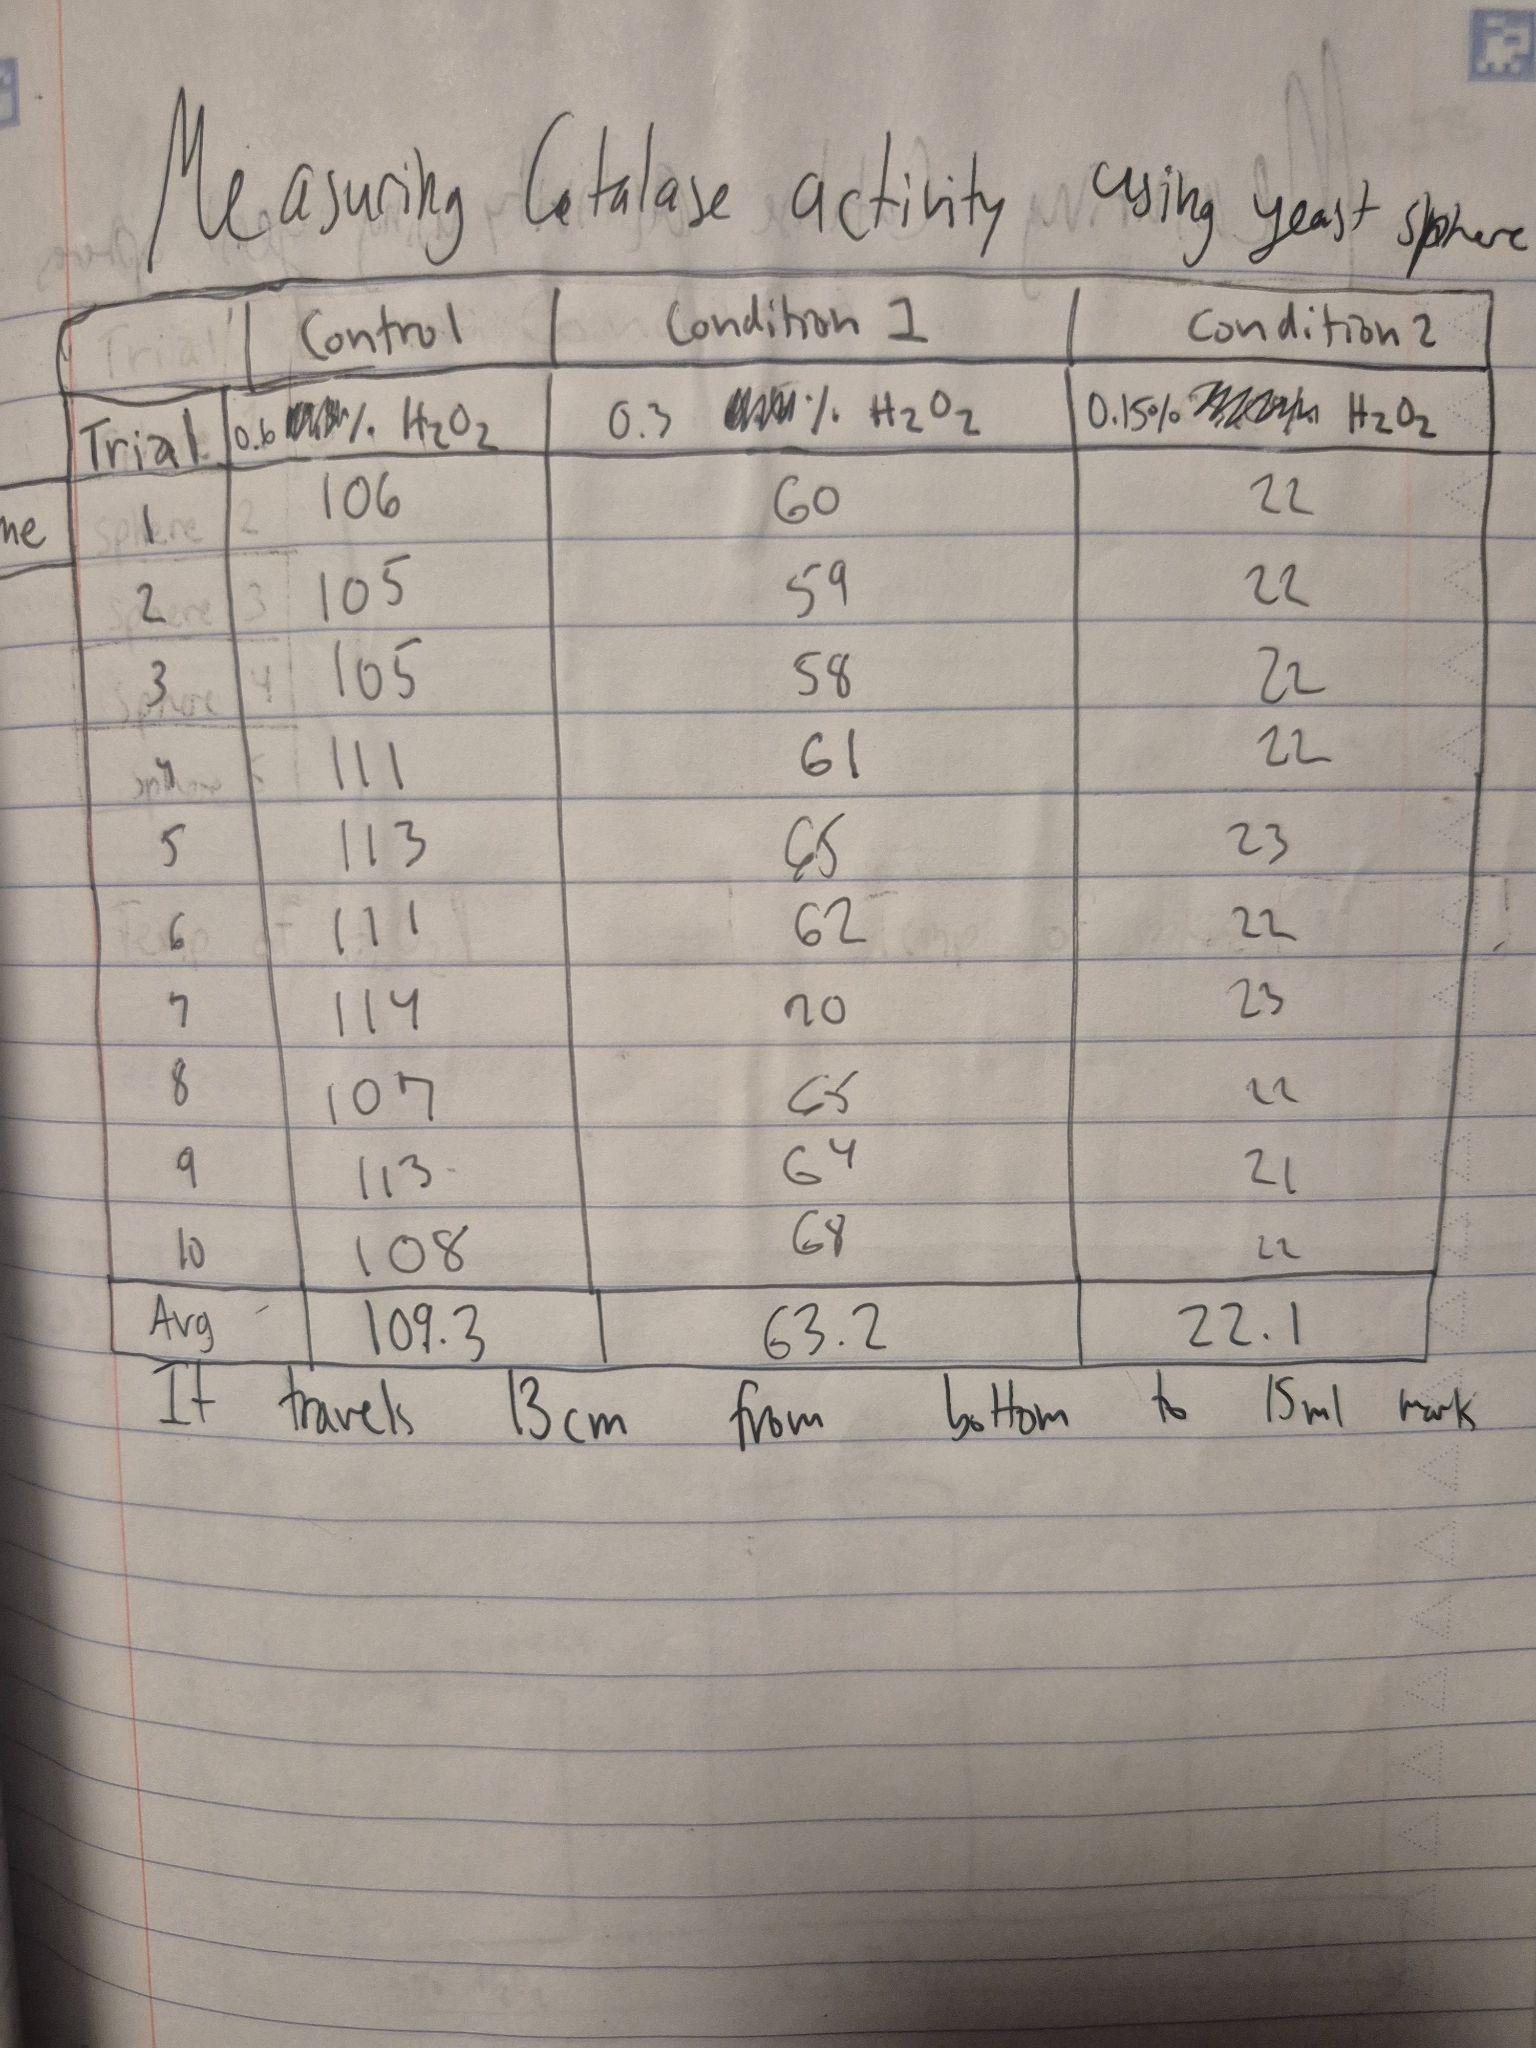 Measuring Catalase activity using yeast sphere
Control Condition 1 Condition 2
Trial 0.6 % H2O2 0.3 % H2O2 0.15% H2O2
1 106 60 22
2 105 59 22
3 105 58 22
4 111 61 22
5 113 65 23
6 111 62 22
7 114 70 23
8 107 65 22
9 113 64 21
10 108 68 22
Avg 109.3 63.2 22.1
It travels 13cm from bottom to 15ml mark